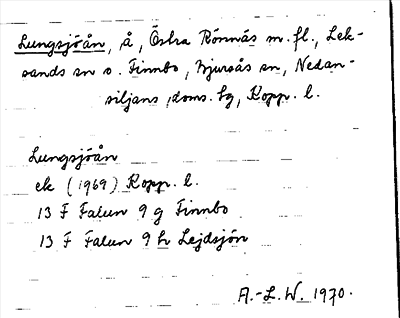 Lungsjöån, å, Östra Rönnås m.fl., Lek-
sands sn o. Finnbo, Bjursås sn, Nedan-
siljans doms. hg, Kopp. l.
Lungsjöån
ek (1969) Kopp. l.
13 F Falun 9 g Finnbo
13 F Falun 9 h Lejdsjön
A.-L. W. 1970.